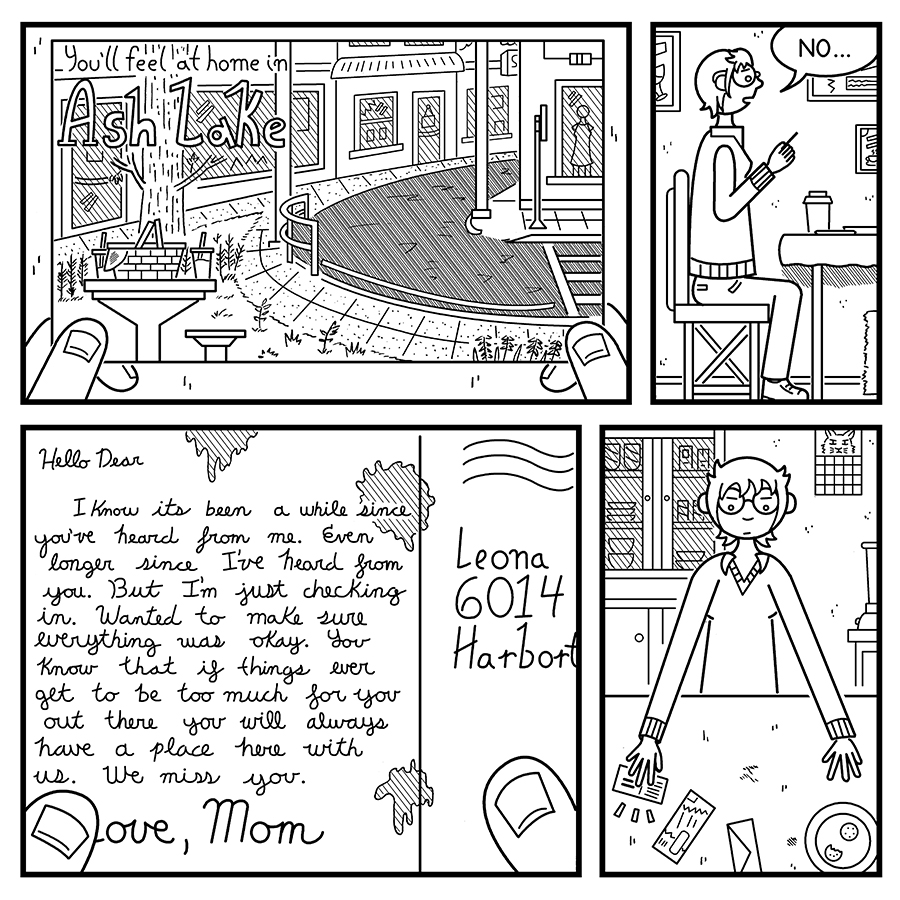 You'll feel at home in
Ash Lake
NO...
Hello Dear
I Know its been a while since
you've heard from me. Even
longer since I've heard from
you. But I'm just checking
in. Wanted to make sure
everything was okay. You
Know that if things ever
get to be too much for you
out there you will always
have a place here with
us. We miss you.
ove, Mom
Leona
6014
Harbort